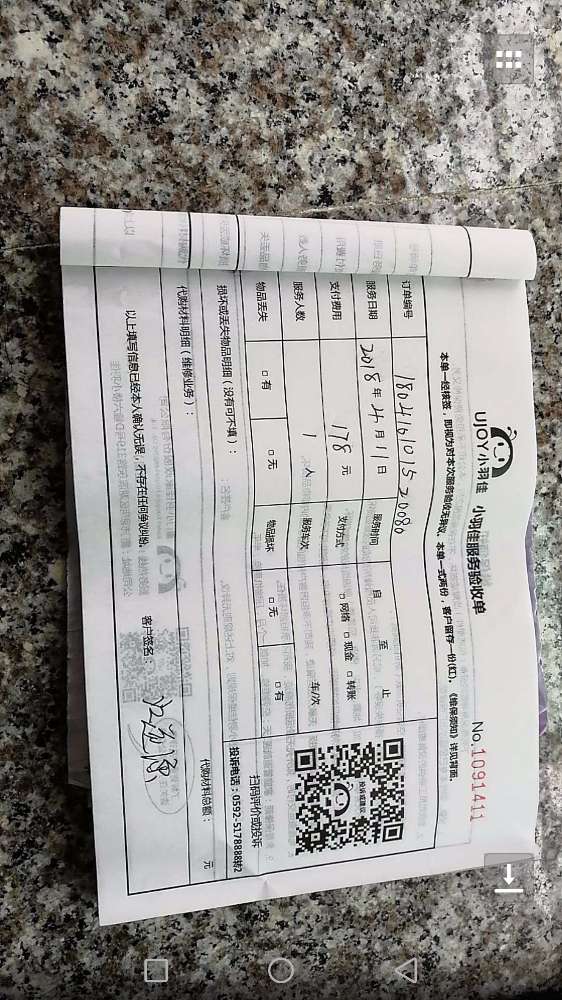 UJOY小羽佳 小羽佳服务验收单 No.1091411
本单一经续签，即视为对本次服务验收无异议。本单一式两份，客户留存一份(红)。《维保须知》详见背面。
订单编号 180416101520080 服务时间 自 至 止
服务日期 2018年4月11日 支付方式 □网络 □现金 □转账
支付费用 178元
服务人数 1人 服务车次 车/次
物品丢失 □有 □无 物品损坏 □无 □有
投诉或建议
扫码评价或投诉
投诉电话：0592-5178888转2
损坏或丢失物品明细（没有可不填）：
代购材料明细（维修业务）： 代购材料总额： 元
以上填写信息已经本人确认无误，不存在任何争议纠纷。 客户签名：